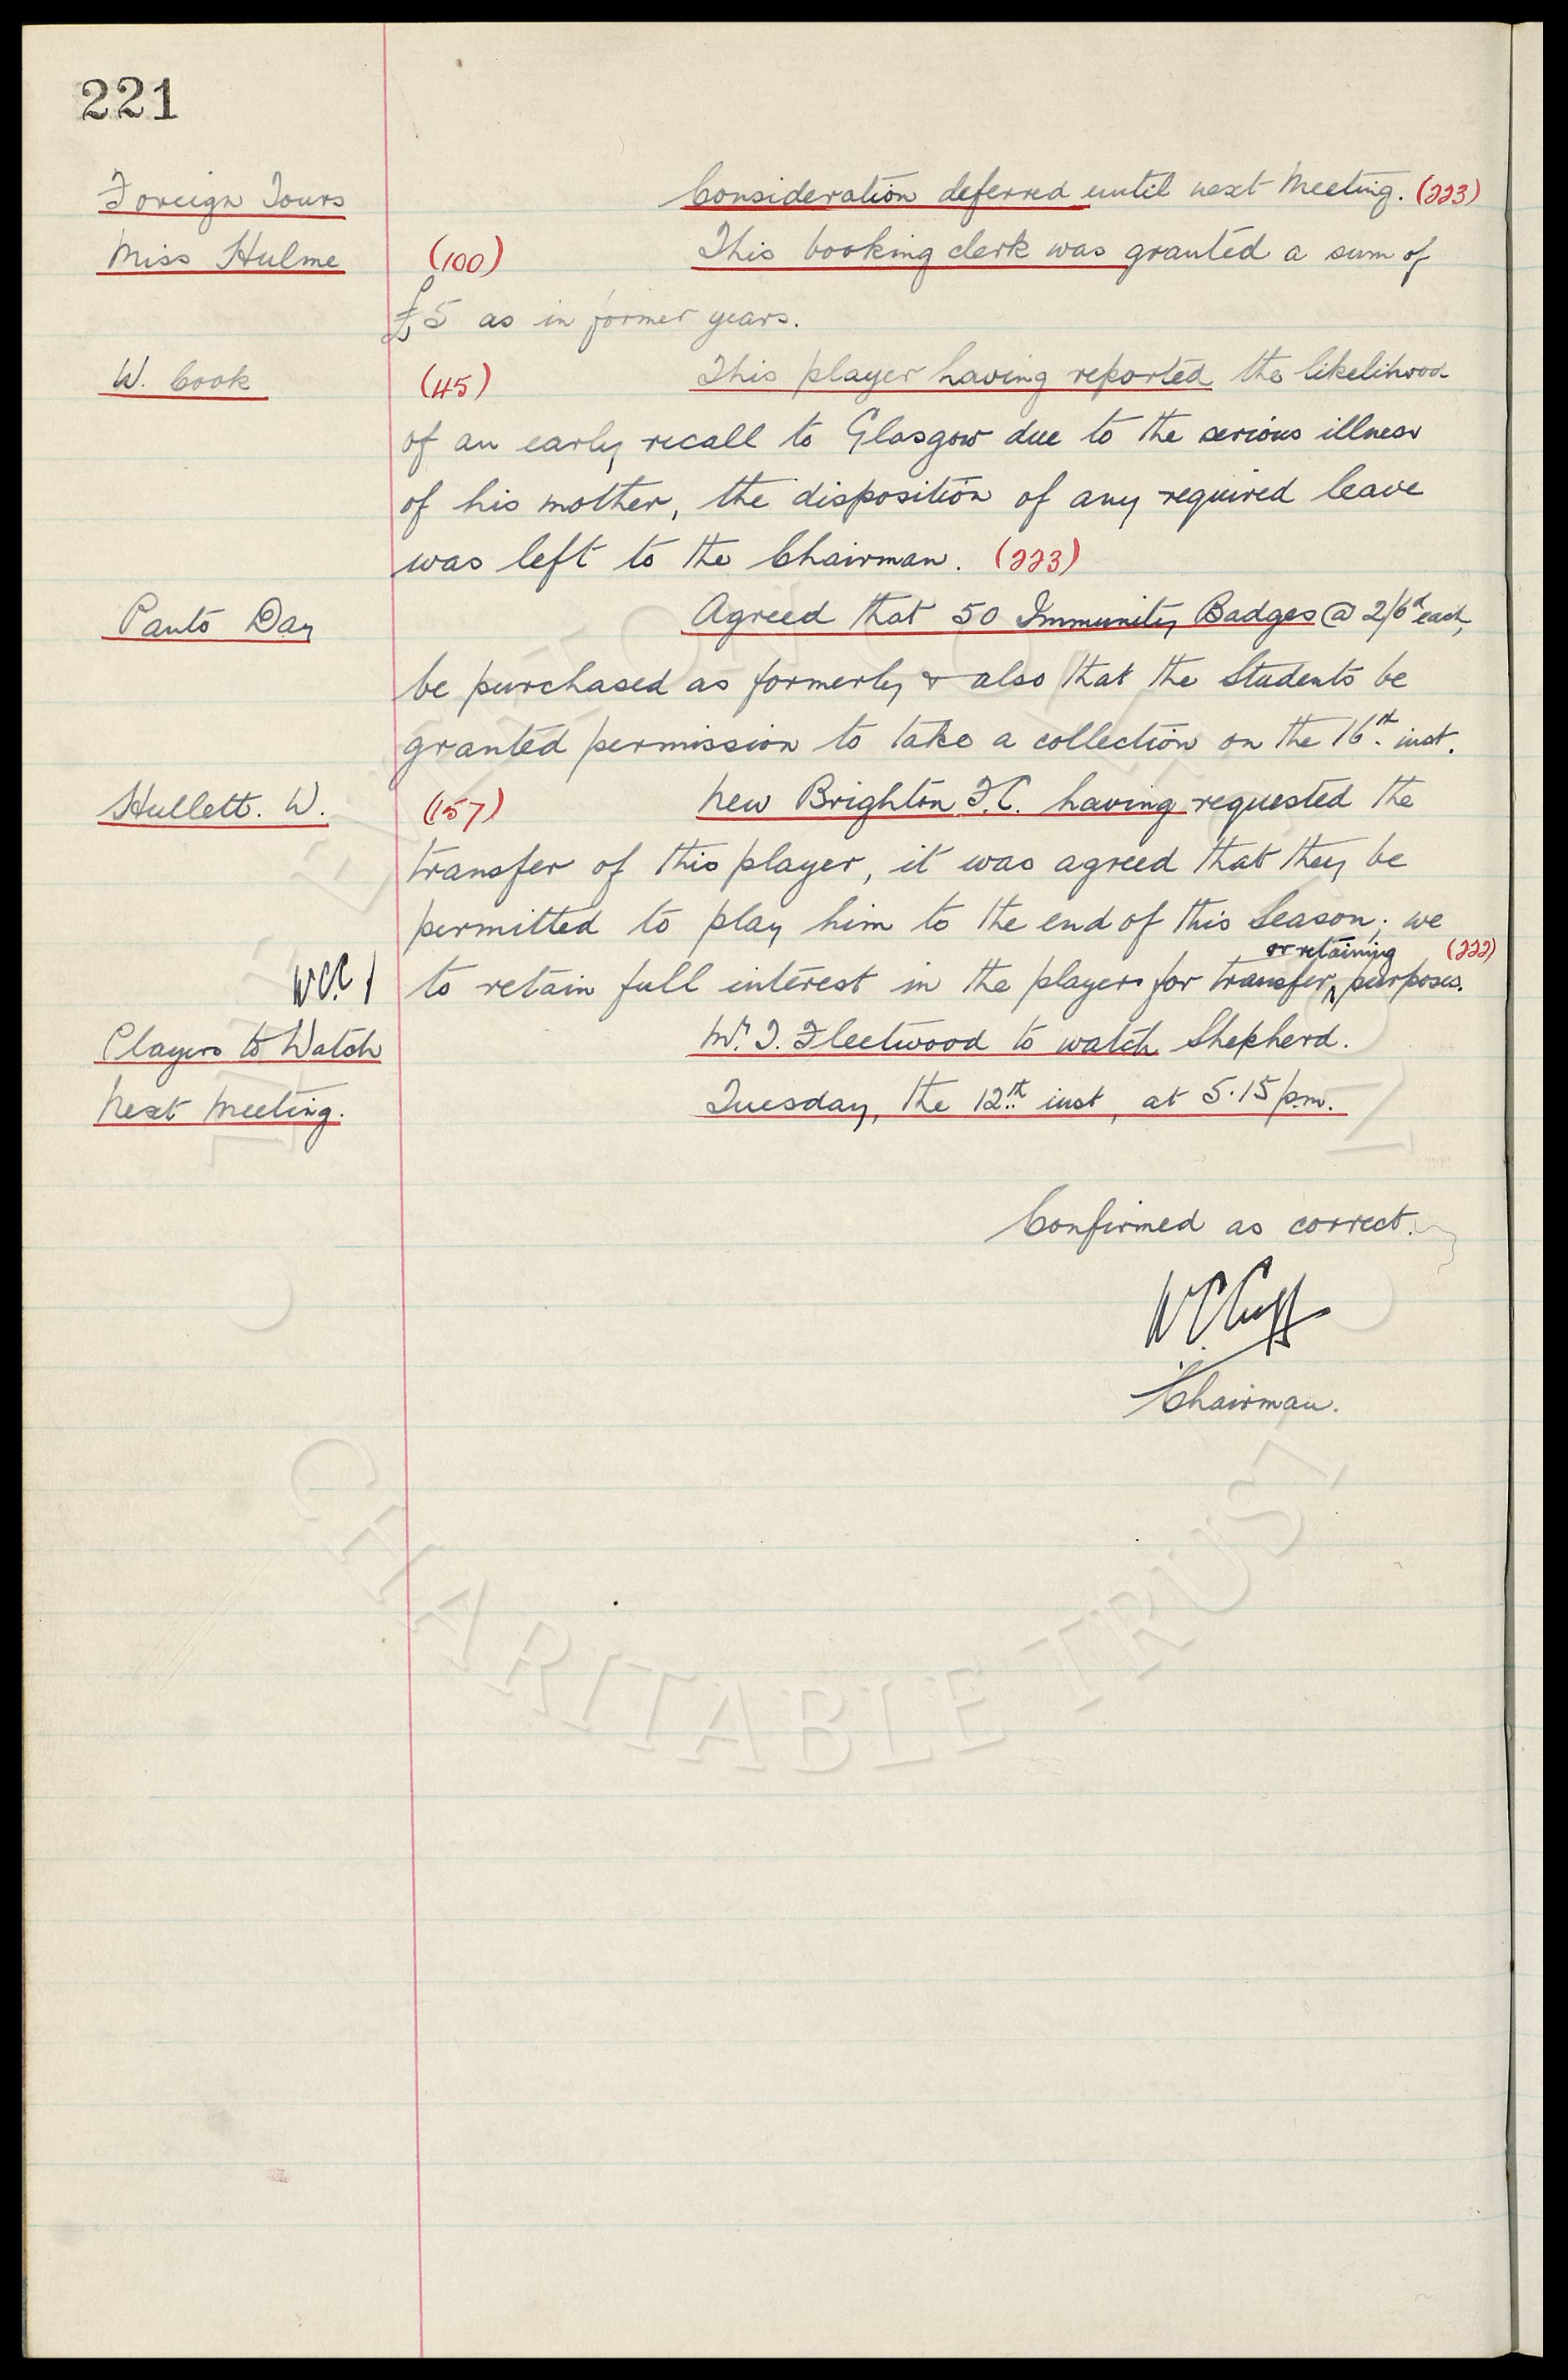 221
Foreign Tours Consideration deferred until next Meeting. (223)
Miss Hulme (100) This booking clerk was granted a sum of
£5 as in former years.
W. Cook (45) This player having reported the likelihood
of an early recall to Glasgow due to the serious illness
of his mother, the disposition of any required leave
was left to the Chairman. (223)
Panto Day Agreed that 50 Immunity Badges @ 2/6d each,
be purchased as formerly & also that the Students be
granted permission to take a collection on the 16th inst.
Hullett. W. (157) New Brighton F.C. having requested the
transfer of this player, it was agreed that they be
permitted to play him to the end of this Season; we
or retaining (222)
W.C.C. to retain full interest in the player for transfer purposes.
Players to Watch Mr. T. Fleetwood to watch Shepherd.
Next Meeting. Tuesday, the 12th inst, at 5.15 p.m.
Confirmed as correct.
W.C. Cuff
Chairman.
EVERTON COLLECTION
CHARITABLE TRUST